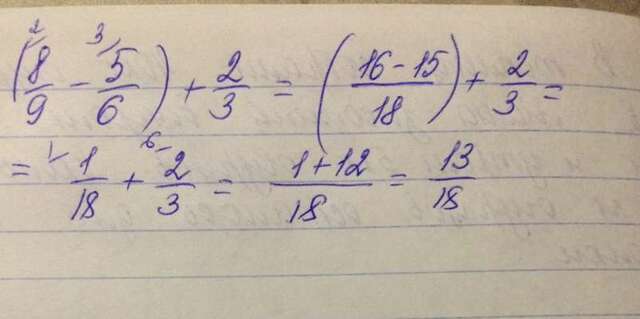 (8/9 - 5/6) + 2/3 = (16-15/18) + 2/3 =
= 1/18 + 2/3 = 1+12/18 = 13/18